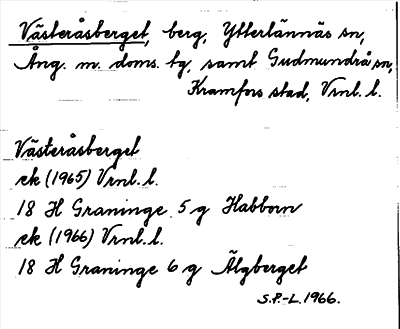 Västeråsberget, berg, Ytterlännäs sn,
Ång. m. doms. tg, samt Gudmundrå sn,
Kramfors stad, Vrnl. l.
Västeråsberget
ek (1965) Vrnl. l.
18 H Graninge 5 g Habborn
ek (1966) Vrnl. l.
18 H Graninge 6 g Älgberget
S.P.-L. 1966.